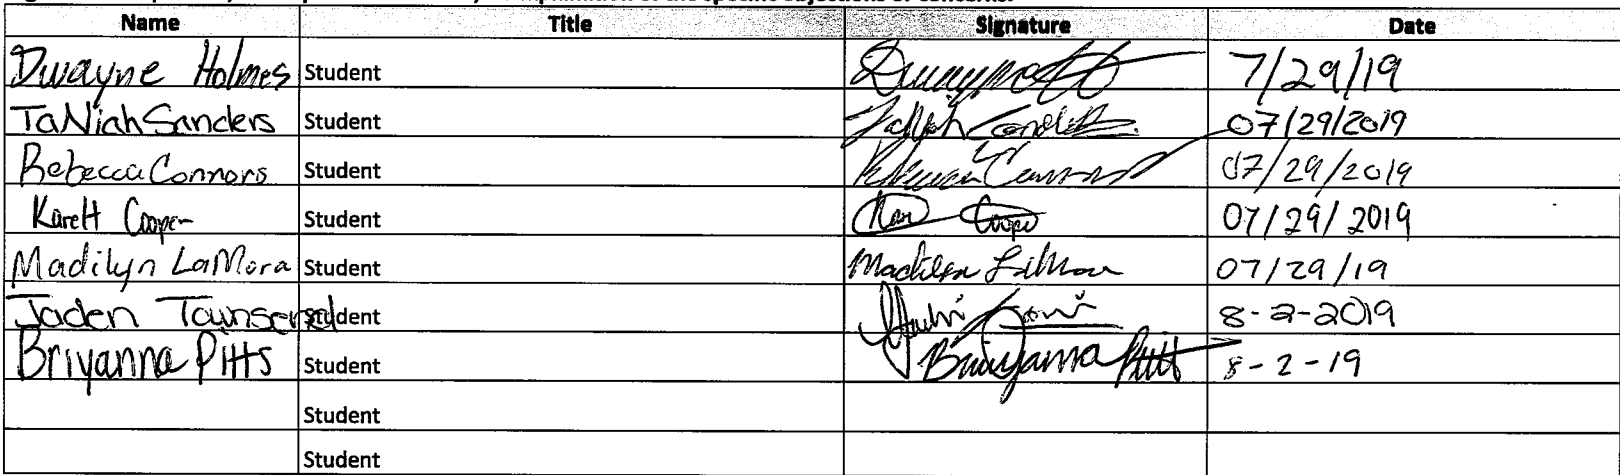 Name Title Signature Date
Dwayne Holmes Student 7/29/19
TaNiah Sanders Student 07/29/2019
Rebecca Connors Student Rebecca Connors 07/29/2019
Karett Cooper Student Cooper 07/29/2019
Madilyn LaMora Student Madilyn LaMora 07/29/19
Jaden Townsend Student 8-2-2019
Briyanna Pitts Student Briyanna Pitts 8-2-19
Student
Student